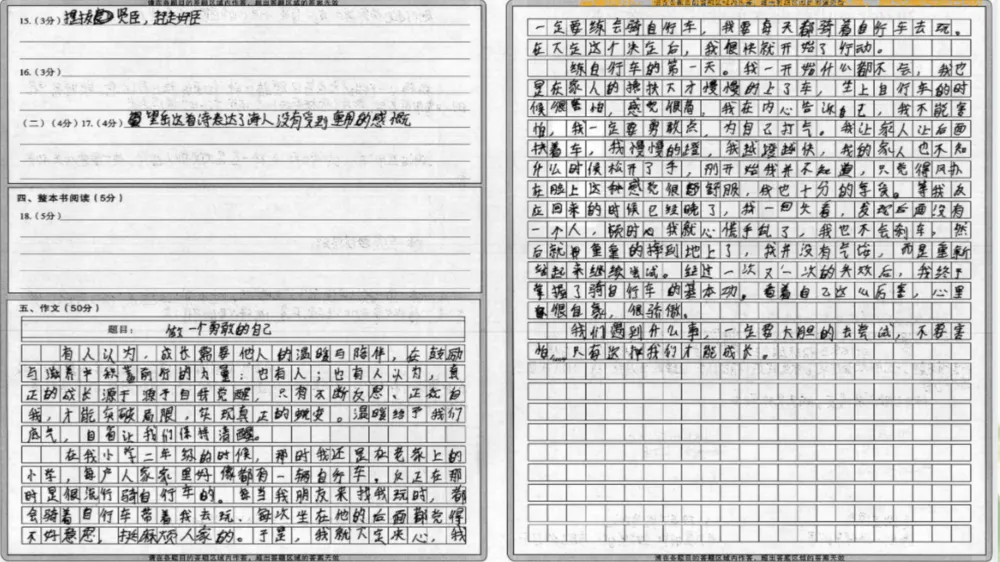 请在各题目的答题区域内作答，超出答题区域的答案无效
15.（3分）提拔贤臣，赶走奸臣
16.（3分）
（二）（4分）17.（4分）
表达了诗人没有受到重用的感慨
四、整本书阅读（5分）
18.（5分）
五、作文（50分）
题目： 做一个勇敢的自己
有人认为，成长需要他人的温暖与陪伴，在鼓励
与滋养中积蓄前行的力量；也有人；也有人认为，真
正的成长源于源于自我觉醒，只有不断反思、正视自
我，才能突破局限，实现真正的蜕变。温暖给予我们
底气，自省让我们保持清醒。
在我小学二年级的时候，那时我还是在老家上的
小学，每户人家家里好像都有一辆自行车。反正在那
时是很流行骑自行车的。每当我朋友来找我玩时，都
会骑着自行车带着我去玩、每次坐在他的后面都觉得
不好意思，挺麻烦人家的。于是，我就大定决心，我
请在各题目的答题区域内作答，超出答题区域的答案无效
一定要练会骑自行车，我要每天都骑着自行车去玩。
在大定这个决定后，我很快就开始了行动。
练自行车的第一天。我一开始什么都不会，我也
是在家人的搀扶大才慢慢的上了车，坐上自行车的时
候很害怕，感觉很高，我在内心告诉自己，我不能害
怕，我一定要勇敢点，为自己打气。我让家人让后面
扶着车，我慢慢的蹬，我越蹬越快，我的家人也不知
什么时候松开了手，刚开始我并不知道，只觉得风扑
在脸上这种感觉很舒服，我也十分的享受。等我反
应回来的时候已经晚了，我一回头看，发现后面没有
一个人，顿时心我就心慌手乱了，我也不会刹车，然
后就重重的摔到地上了，我并没有气馁，而是重新
站起来继续尝试。经过一次又一次的失败后，我终于
掌握了骑自行车的基本功。看着自己这么厉害，心里
很自豪，很骄傲。
我们遇到什么事，一定要大胆的去尝试，不要害
怕，只有这种我们才能成长。
请在各题目的答题区域内作答，超出答题区域的答案无效